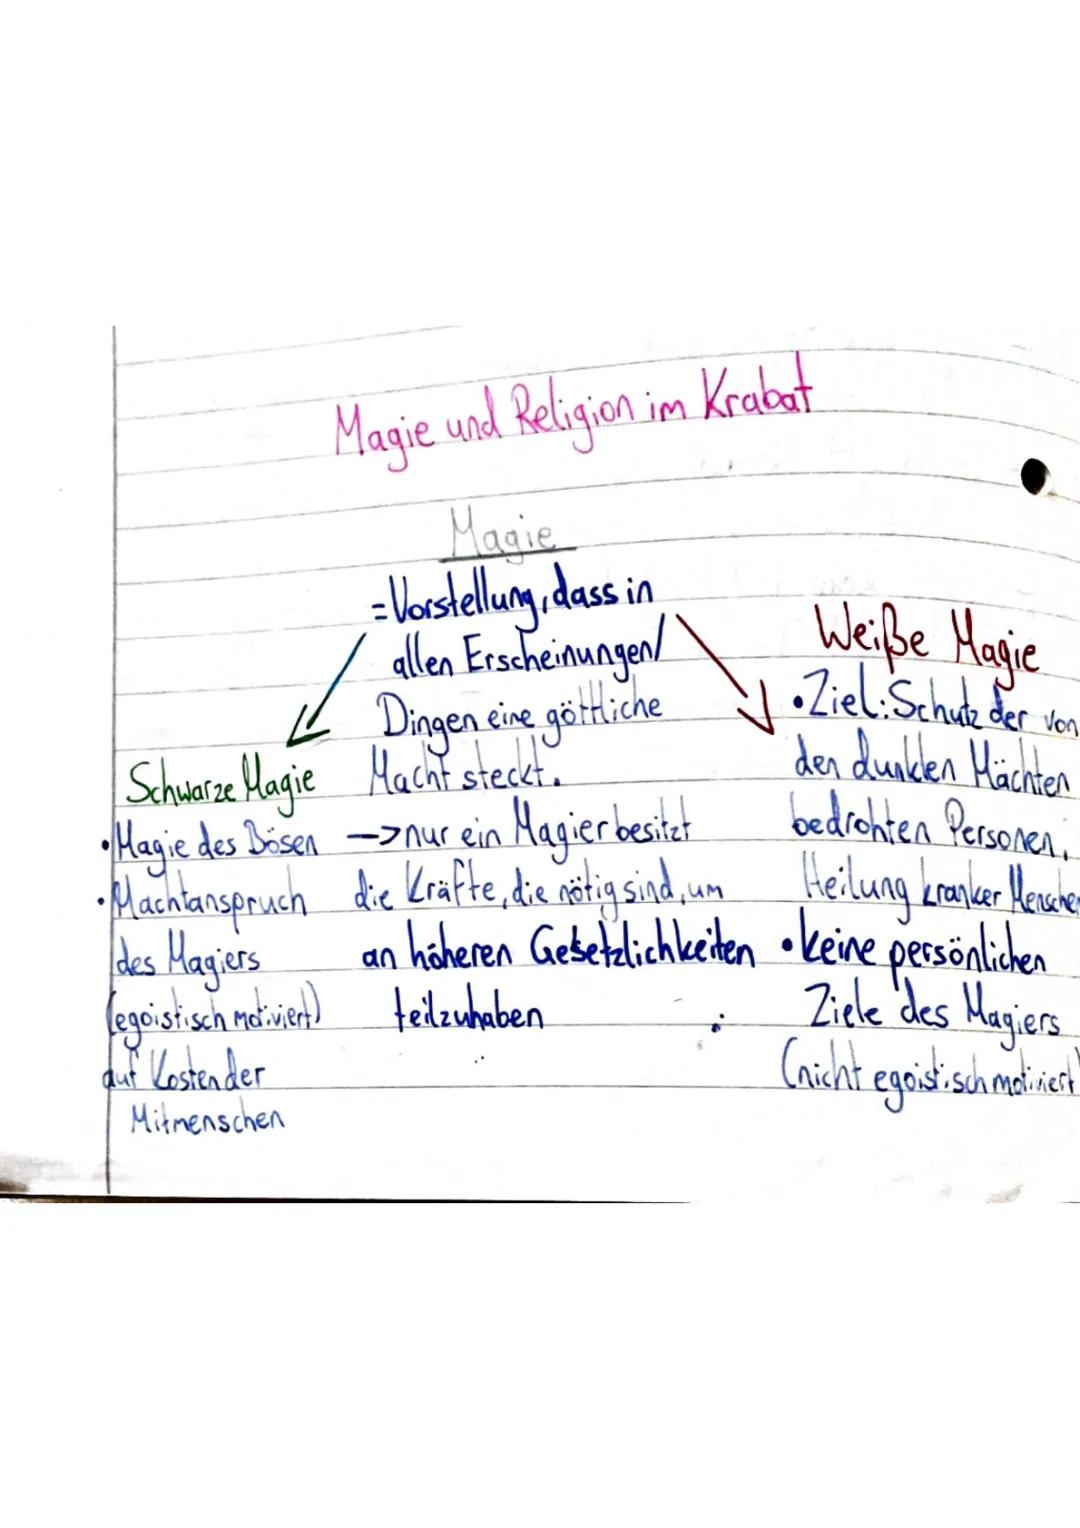 Magie und Religion im Krabat
Magie
=Vorstellung, dass in
allen Erscheinungen/
Dingen eine göttliche
Macht steckt.
->nur ein Magier besitzt
die Kräfte, die nötig sind, um
an höheren Gesetzlichkeiten
teilzuhaben
Schwarze Magie
•Magie des Bösen
•Machtanspruch
des Magiers
(egoistisch motiviert)
auf Kosten der
Mitmenschen
Weiße Magie
•Ziel: Schutz der von
den dunklen Mächten
bedrohten Personen,
Heilung kranker Menschen
•keine persönlichen
Ziele des Magiers
(nicht egoistisch motiviert)